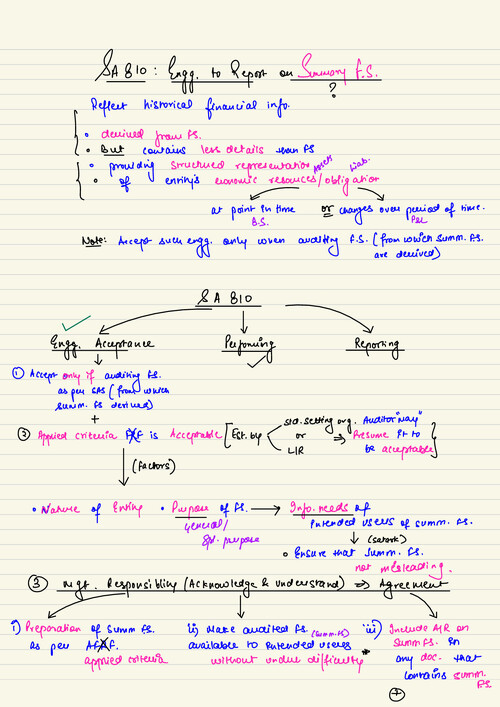 SA 810 : Engg. to Report on Summary F.S.
?
Reflect historical financial info.
• derived from FS.
• But contains less details than FS
• providing structured representation
• of entity's economic resources/obligation
Assets Liab.
at point in time or changes over period of time.
B.S. P&L
Note: Accept such engg. only when auditing F.S. (from which summ. F.S.
are derived)
SA 810
Engg. Acceptance Performing Reporting
① Accept only if auditing FS.
as per SAS (from which
summ. FS derived)
+
② Applied criteria is Acceptable [Est. by std. setting org. Auditor "may"
or ⇒ Presume it to
LIR be acceptable]
(factors)
• Nature of Entity • Purpose of FS. → Info. needs of
general/ Intended users of summ. FS.
Spl. purpose
• Ensure that summ. FS.
not misleading.
③ Mgt. Responsibility (Acknowledge & understand) ⇒ Agreement
i) Preparation of Summ FS.
as per applied criteria
ii) Make audited FS. (summ. FS)
available to Intended users
without undue difficulty *
iii) Include A/R on
Summ FS. in
any doc. that
contains summ.
FS.